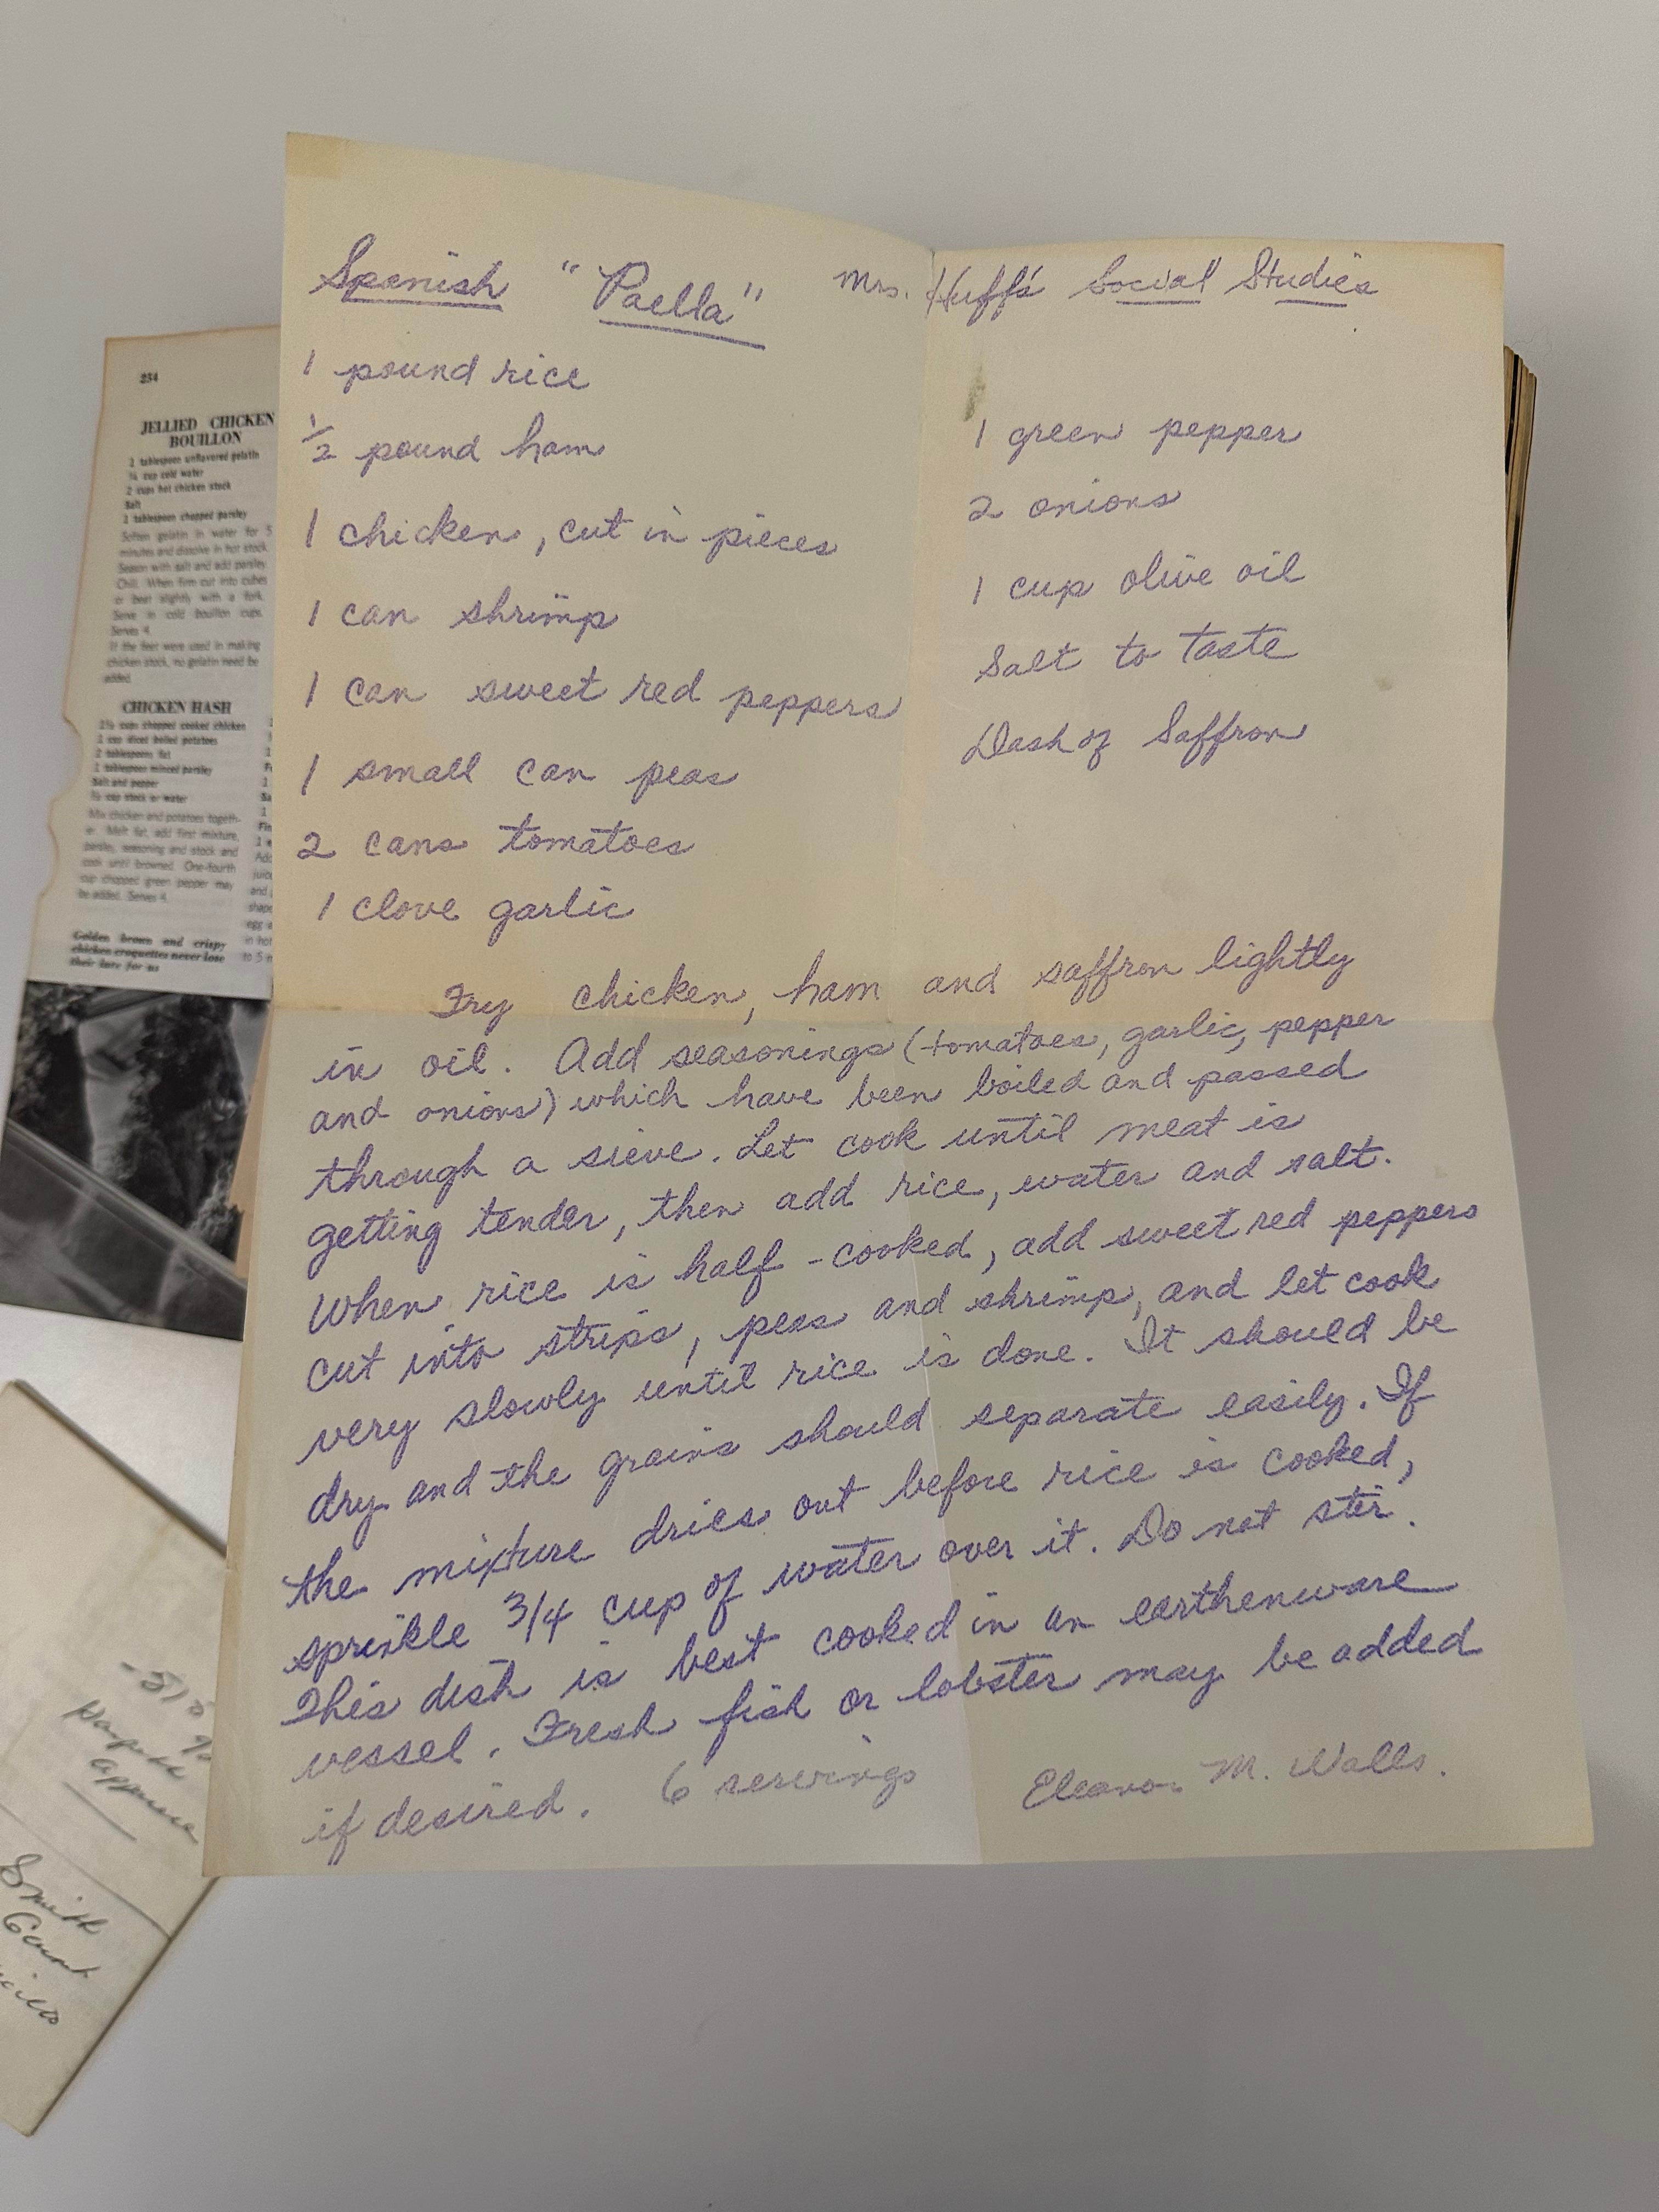 Spanish "Paella" Mrs. Huff's Social Studies
1 pound rice
1/2 pound ham
1 chicken, cut in pieces
1 can shrimp
1 can sweet red peppers
1 small can peas
2 cans tomatoes
1 clove garlic
1 green pepper
2 onions
1 cup olive oil
Salt to taste
Dash of Saffron
Fry chicken, ham and saffron lightly
in oil. Add seasonings (tomatoes, garlic, pepper
and onions) which have been boiled and passed
through a sieve. Let cook until meat is
getting tender, then add rice, water and salt.
When rice is half-cooked, add sweet red peppers
cut into strips, peas and shrimp, and let cook
very slowly until rice is done. It should be
dry and the grains should separate easily. If
the mixture dries out before rice is cooked,
sprinkle 3/4 cup of water over it. Do not stir.
This dish is best cooked in an earthenware
vessel. Fresh fish or lobster may be added
if desired. 6 servings Eleanor M. Walls.
234
JELLIED CHICKEN
BOUILLON
2 tablespoon unflavored gelatin
1/4 cup cold water
2 cups hot chicken stock
Salt
1 tablespoon chopped parsley
Soften gelatin in water for 5
minutes and dissolve in hot stock.
Season with salt and add parsley.
Chill. When firm cut into cubes
or beat slightly with a fork.
Serve in cold bouillon cups.
Serves 4.
If the feet were used in making
chicken stock, no gelatin need be
added.
CHICKEN HASH
1 1/2 cups chopped cooked chicken
1 cup diced boiled potatoes
2 tablespoons fat
1 tablespoon minced parsley
Salt and pepper
1/2 cup stock or water
Mix chicken and potatoes togeth-
er. Melt fat, add first mixture,
parsley, seasoning and stock and
cook until browned. One-fourth
cup chopped green pepper may
be added. Serves 4.
Golden brown and crispy
chicken croquettes never lose
their lure for us
Smith